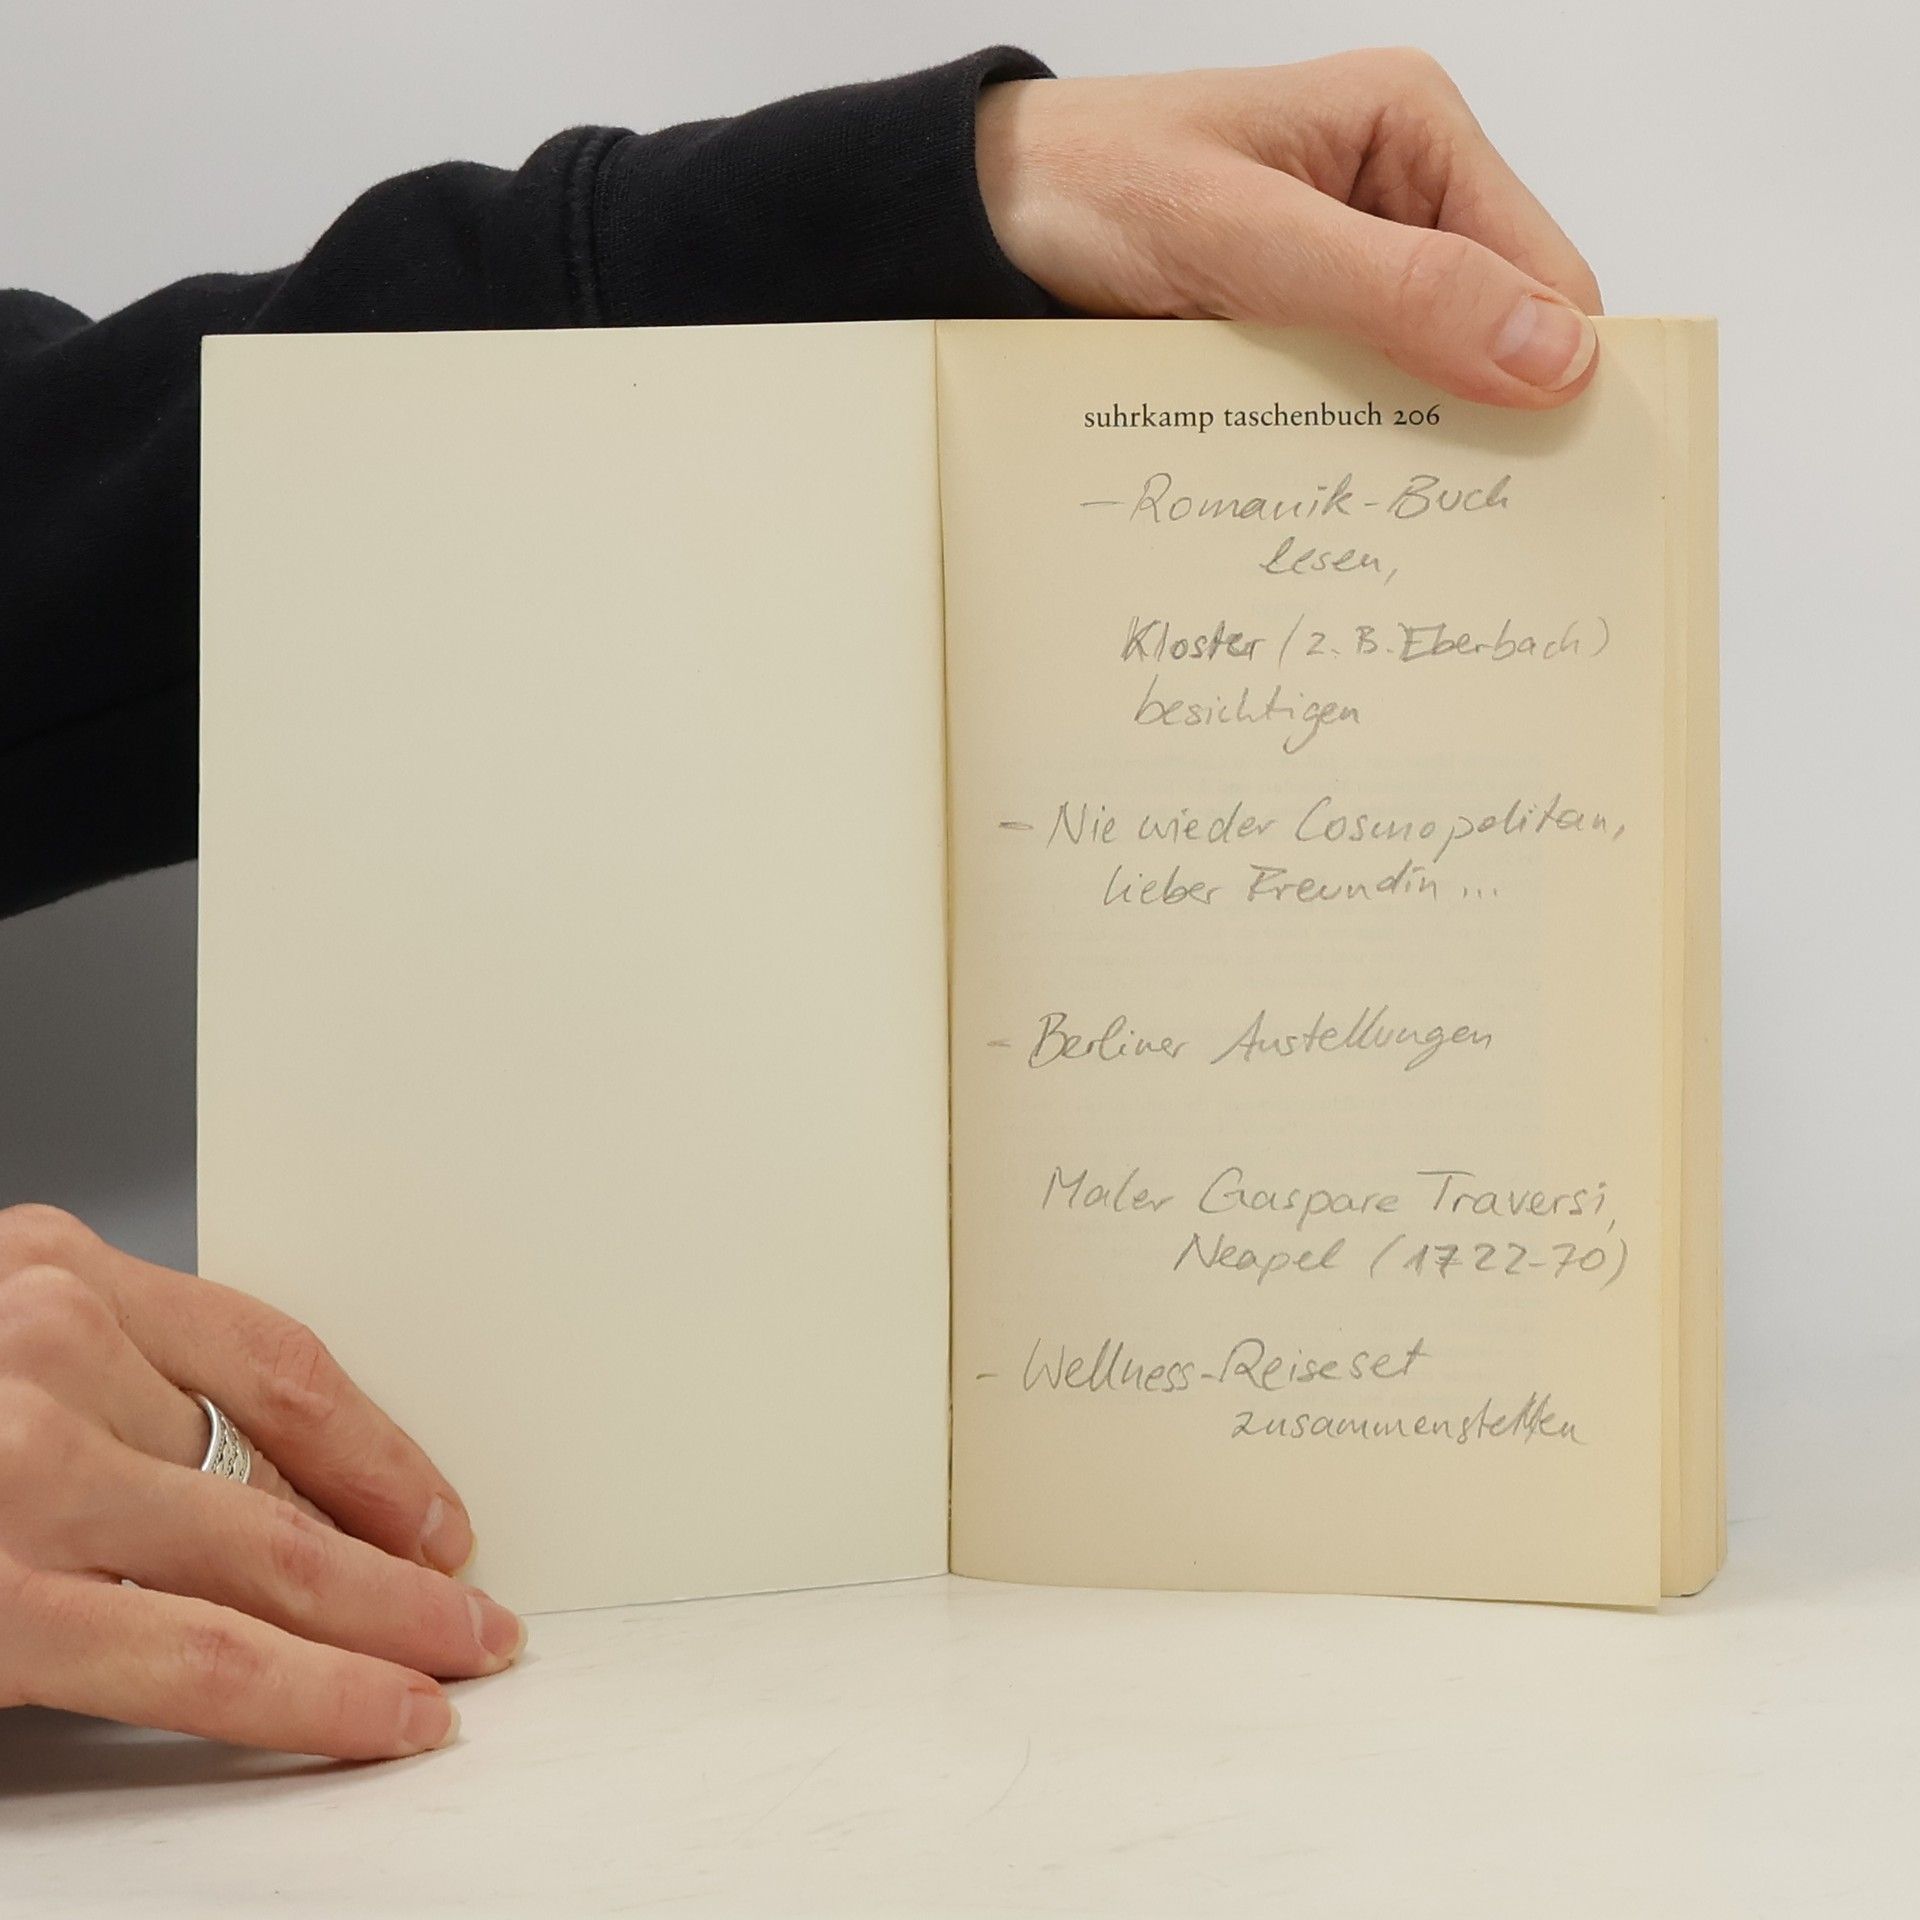 suhrkamp taschenbuch 206
– Romanik-Buch
lesen,
Kloster (z. B. Eberbach)
besichtigen
– Nie wieder Cosmopolitan,
lieber Freundin ...
– Berliner Austellungen
Maler Gaspare Traversi,
Neapel (1722-70)
– Wellness-Reiseset
zusammenstellen